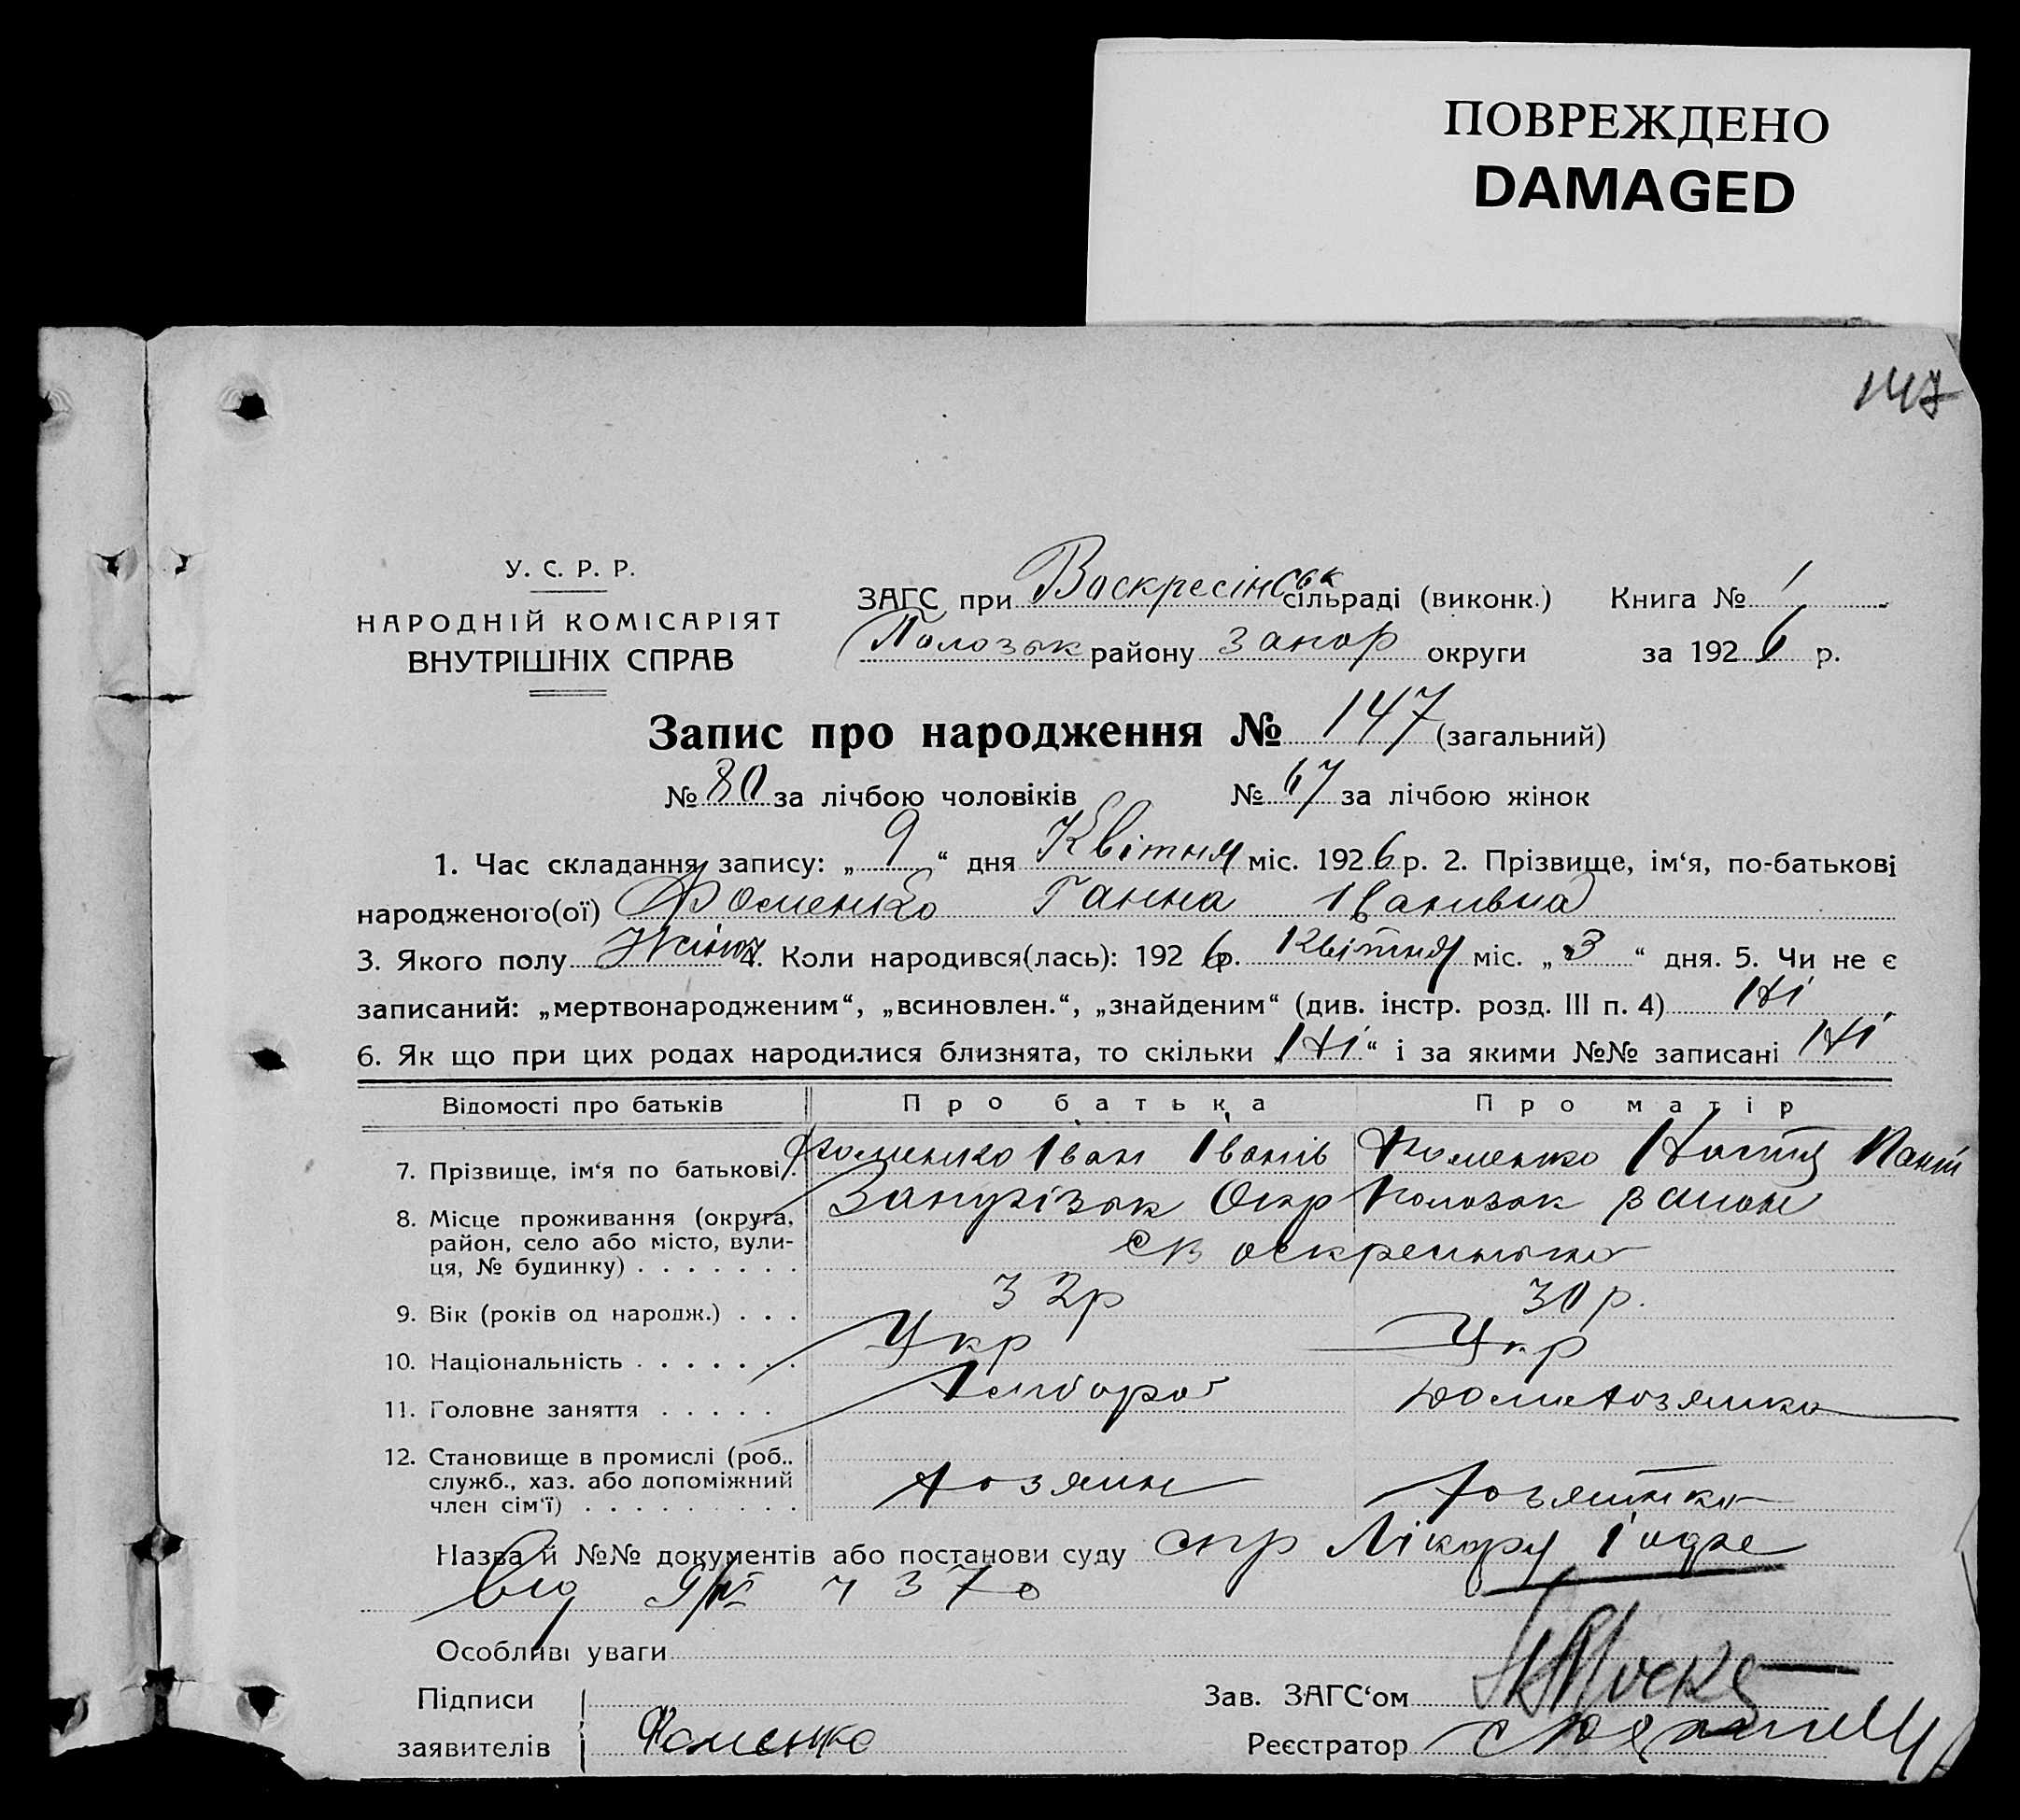 ПОВРЕЖДЕНО
DAMAGED
147
У. С. Р. Р.
НАРОДНІЙ КОМІСАРІЯТ
ВНУТРІШНІХ СПРАВ
ЗАГС при Воскресінськ сільраді (виконк.) Книга № 1
Полозьк району Запор округи за 1926 р.
Запис про народження № 147 (загальний)
№ 80 за лічбою чоловіків № 67 за лічбою жінок
1. Час складання запису: „ 9 “ дня Квітня міс. 1926 р. 2. Прізвище, ім‘я, по-батькові
народженого(ої) Фоменко Ганна Іванивна
3. Якого полу Жіноч 4. Коли народився(лась): 1926 р. Квітня міс. „ 3 “ дня. 5. Чи не є
записаний: „мертвонародженим“, „всиновлен.“, „знайденим“ (див. інстр. розд. III п. 4) Ні
6. Як що при цих родах народилися близнята, то скільки „ Ні “ і за якими №№ записані Ні
Відомості про батьків Про батька Про матір
7. Прізвище, ім‘я по батькові. Фоменко Іван Іванів Фоменко Настя
8. Місце проживання (округа, Запузізьк Окр Полозьк район
район, село або місто, вули-
ця, № будинку) . . . . . . . с Воскресенька
9. Вік (років од народж.) . . . 32р 30 р.
10. Національність . . . . . . . Укр Укр
11. Головне заняття . . . . . Хлібороб Домохозяйка
12. Становище в промислі (роб..
служб., хаз. або допоміжний
член сім‘ї) . . . . . . . . . Хозяин Хозяйка
Назва й №№ документів або постанови суду Лікару
від 9/IV
Особливі уваги
Підписи Зав. ЗАГС‘ом
заявителів Фоменко Реєстратор